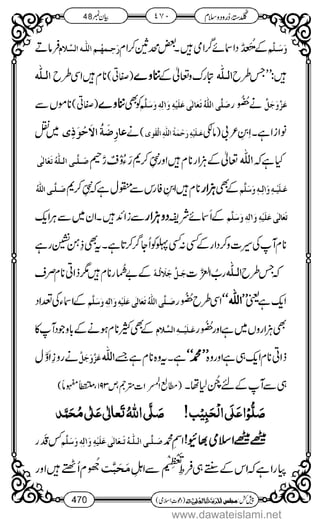 گلدستۂ درود و سلام ٤٧٠ بیان نمبر 48
وَسَلَّم کے بے عدد اسمائے گرامی ہیں۔ بعض محدثین کرام رَحِمَہُمُ اللہُ السَّلَام فرماتے
ہیں: ’’جس طرح اللہ تبارک وتعالیٰ کے ننانوے (صفاتی) نام ہیں اسی طرح اللہ
عَزَّوَجَلَّ نے حضور صَلَّی اللہُ تَعَالٰی عَلَیْہِ وَاٰلِہٖ وَسَلَّم کو بھی ننانوے (صفاتی) ناموں سے
نوازا ہے۔ ابن عربی (مالکی عَلَیْہِ رَحْمَۃُ اللہِ الْقَوِی) نے عَارِضَۃُ الْاَحْوَذِی میں نقل
کیا ہے کہ اللہ تعالیٰ کے ہزار نام ہیں اور نبی کریم، رَءُوْفٌ رَّحیم صَلَّی اللہُ تَعَالٰی
عَلَیْہِ وَاٰلِہٖ وَسَلَّم کے بھی ہزار نام ہیں۔ ابن فارس سے منقول ہے کہ نبی کریم صَلَّی اللہُ
تَعَالٰی عَلَیْہِ وَاٰلِہٖ وَسَلَّم کے اسمائے شریفہ دو ہزار سے زائد ہیں۔ ان میں سے ہر ایک
نام آپ کی سیرت و کردار کے کسی نہ کسی پہلو کو اُجاگر کرتا ہے۔ یہ بھی ذہن نشین رہے
کہ جس طرح اللہ ربُّ العزت جَلَّ جَلَالُہٗ کے بے شمار نام ہیں مگر ذاتی نام صرف
ایک ہے یعنی ’’اللہ‘‘ اسی طرح حضور صَلَّی اللہُ تَعَالٰی عَلَیْہِ وَاٰلِہٖ وَسَلَّم کے اسماء کی تعداد
بھی ہزاروں میں ہے اور حضور عَلَیْہِ السَّلَام کے بھی کثیر نام ہونے کے باوجود آپ کا
ذاتی نام ایک ہی ہے اور وہ ’’محمد‘‘ ہے۔ یہ وہ نام ہے جسے اللہ عَزَّوَجَلَّ نے روزِ اَوَّل
ہی سے آپ کے لئے چُن لیا تھا۔ (مطالع المسرات مترجم ص١٩٣، ملتقطا مفہوماً)
صَلُّوْا عَلَی الْحَبِیْبِ! صَلَّی اللہُ تَعَالٰی عَلٰی مُحَمَّد
میٹھے میٹھے اسلامی بھائیو! اسم محمد صَلَّی اللہُ تَعَالٰی عَلَیْہِ وَاٰلِہٖ وَسَلَّم کس قدر
پیارا ہے کہ اس کے سنتے ہی فرطِ تعظیم سے اہلِ محبت جھوم اُٹھتے ہیں اور ان
470 پیش کش: مجلس المدینۃ العلمیۃ (دعوت اسلامی)
www.dawateislami.net